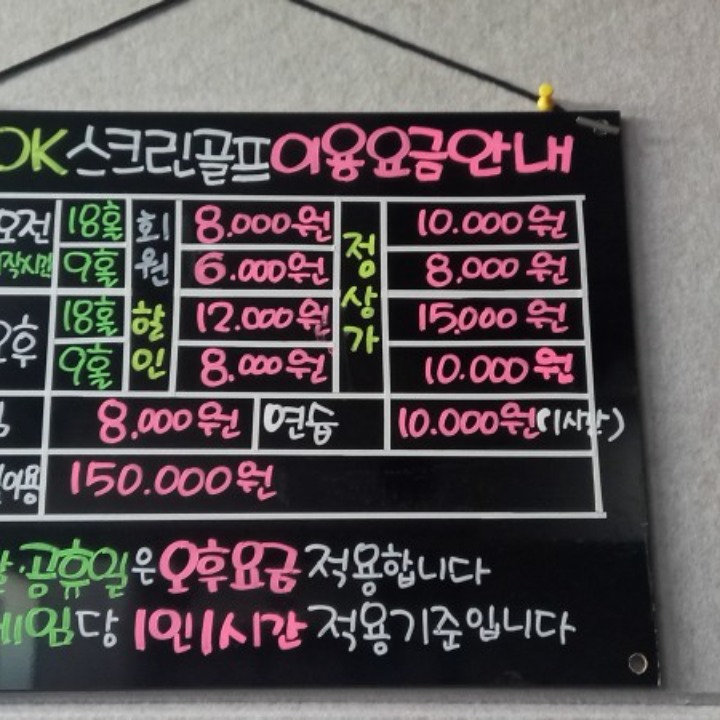 OK스크린골프이용요금안내
오전 18홀 회원 8.000원 정상가 10.000원
9홀 6.000원 8,000원
오후 18홀 할인 12.000원 15.000원
9홀 8.000원 10.000원
8,000원 연습 10.000원(1시간)
150.000원
공휴일은오후요금 적용합니다
게임당 1인1시간 적용기준입니다